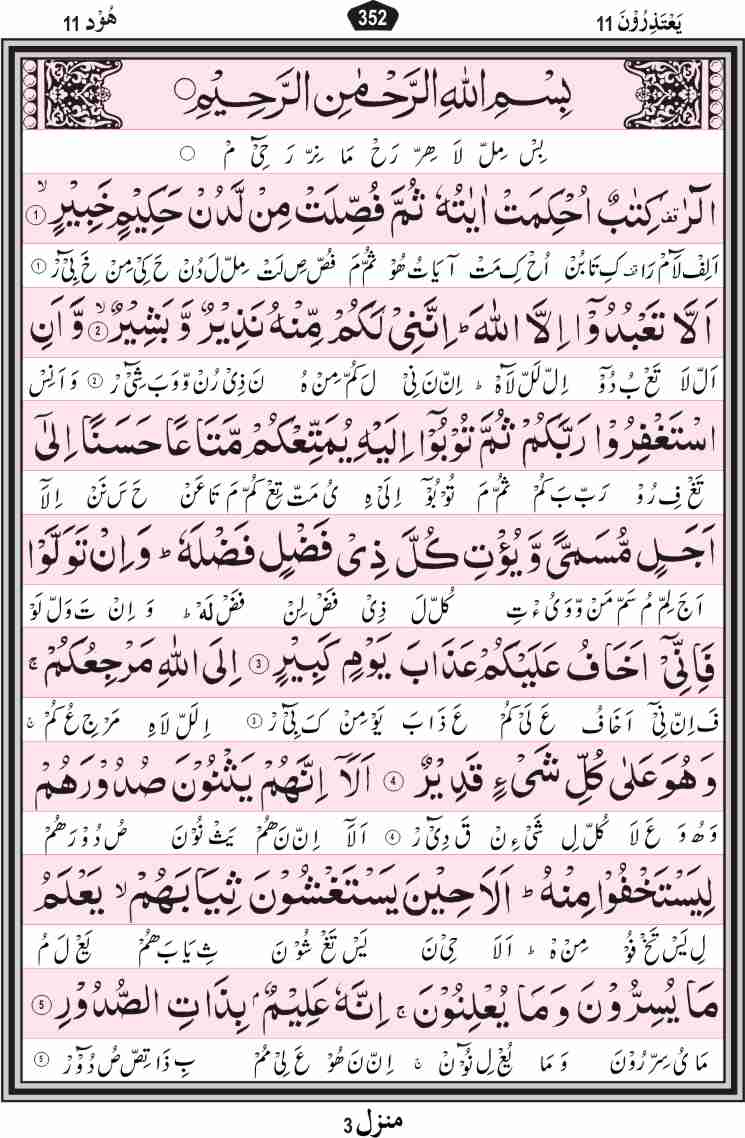 يَعْتَذِرُوْنَ 11 352 هُوْد 11
بِسْمِ اللهِ الرَّحْمٰنِ الرَّحِيْمِ ○
بِسْ مِلّ لَا هِرّ رَحْ مَا نِرّ رَ حِيْٓ مْ ○
الٓرٰ قف كِتٰبٌ اُحْكِمَتْ اٰيٰتُهٗ ثُمَّ فُصِّلَتْ مِنْ لَّدُنْ حَكِيْمٍ خَبِيْرٍ ۙ ١
اَلِفْ لَآمْ رَا قف كِ تَا بُنْ اُحْ كِ مَتْ آ يَاتُ هُوْ ثُمّ مَ فُصّ صِ لَتْ مِلّ لَ دُنْ حَ كِىْ مِنْ خَ بِىْٓ رْ ١
اَلَّا تَعْبُدُوْۤا اِلَّا اللهَ ؕ اِنَّنِيْ لَكُمْ مِّنْهُ نَذِيْرٌ وَّ بَشِيْرٌ ۙ ٢ وَّ اَنِ
اَلّ لَا تَعْ بُ دُوْٓ اِلّ لَلّ لَآهْ ؕ اِنّ نَ نِىْ لَ كُمّ مِنْ هُ نَ ذِىْ رُنْ وّ وَ بَ شِىْٓ رْ ٢ وَ اَ نِسْ
اسْتَغْفِرُوْا رَبَّكُمْ ثُمَّ تُوْبُوْۤا اِلَيْهِ يُمَتِّعْكُمْ مَّتَاعًا حَسَنًا اِلٰۤى
تَغْ فِ رُوْ رَبّ بَ كُمْ ثُمّ مَ تُوْ بُوْٓ اِلَىْ هِ ىُ مَتّ تِعْ كُمّ مَ تَا عَنْ حَ سَ نَنْ اِلَآ
اَجَلٍ مُّسَمًّى وَّ يُؤْتِ كُلَّ ذِيْ فَضْلٍ فَضْلَهٗ ؕ وَ اِنْ تَوَلَّوْا
اَجَ لِمّ مُ سَمّ مَنْ وّ وَ ىُ ءْ تِ كُلّ لَ ذِىْ فَضْ لِنْ فَضْ لَهْ ؕ وَ اِنْ تَ وَلّ لَوْ
فَاِنِّيْۤ اَخَافُ عَلَيْكُمْ عَذَابَ يَوْمٍ كَبِيْرٍ ٣ اِلَى اللهِ مَرْجِعُكُمْ ۚ
فَ اِنّ نِىْٓ اَخَافُ عَ لَىْ كُمْ عَ ذَا بَ يَوْ مِنْ كَ بِىْٓ رْ ٣ اِلَلّ لَاهِ مَرْ جِ عُ كُمْ ۚ
وَ هُوَ عَلٰى كُلِّ شَيْءٍ قَدِيْرٌ ٤ اَلَاۤ اِنَّهُمْ يَثْنُوْنَ صُدُوْرَهُمْ
وَ هُ وَ عَ لَا كُلّ لِ شَىْ ءِ نْ قَ دِىْٓ رْ ٤ اَلَآ اِنّ نَ هُمْ يَثْ نُوْنَ صُ دُوْ رَ هُمْ
لِيَسْتَخْفُوْا مِنْهُ ؕ اَلَا حِيْنَ يَسْتَغْشُوْنَ ثِيَابَهُمْ ۙ يَعْلَمُ
لِ يَسْ تَخْ فُوْ مِنْ هْ ؕ اَلَا حِىْ نَ يَسْ تَغْ شُوْ نَ ثِ يَا بَ هُمْ يَعْ لَ مُ
مَا يُسِرُّوْنَ وَ مَا يُعْلِنُوْنَ ۚ اِنَّهٗ عَلِيْمٌۢ بِذَاتِ الصُّدُوْرِ ٥
مَا ىُ سِرّ رُوْنَ وَ مَا يُعْ لِ نُوْٓنْ ۚ اِنّ نَ هُوْ عَ لِىْ مُمْ بِ ذَا تِصّ صُ دُوْٓ رْ ٥
منزل 3